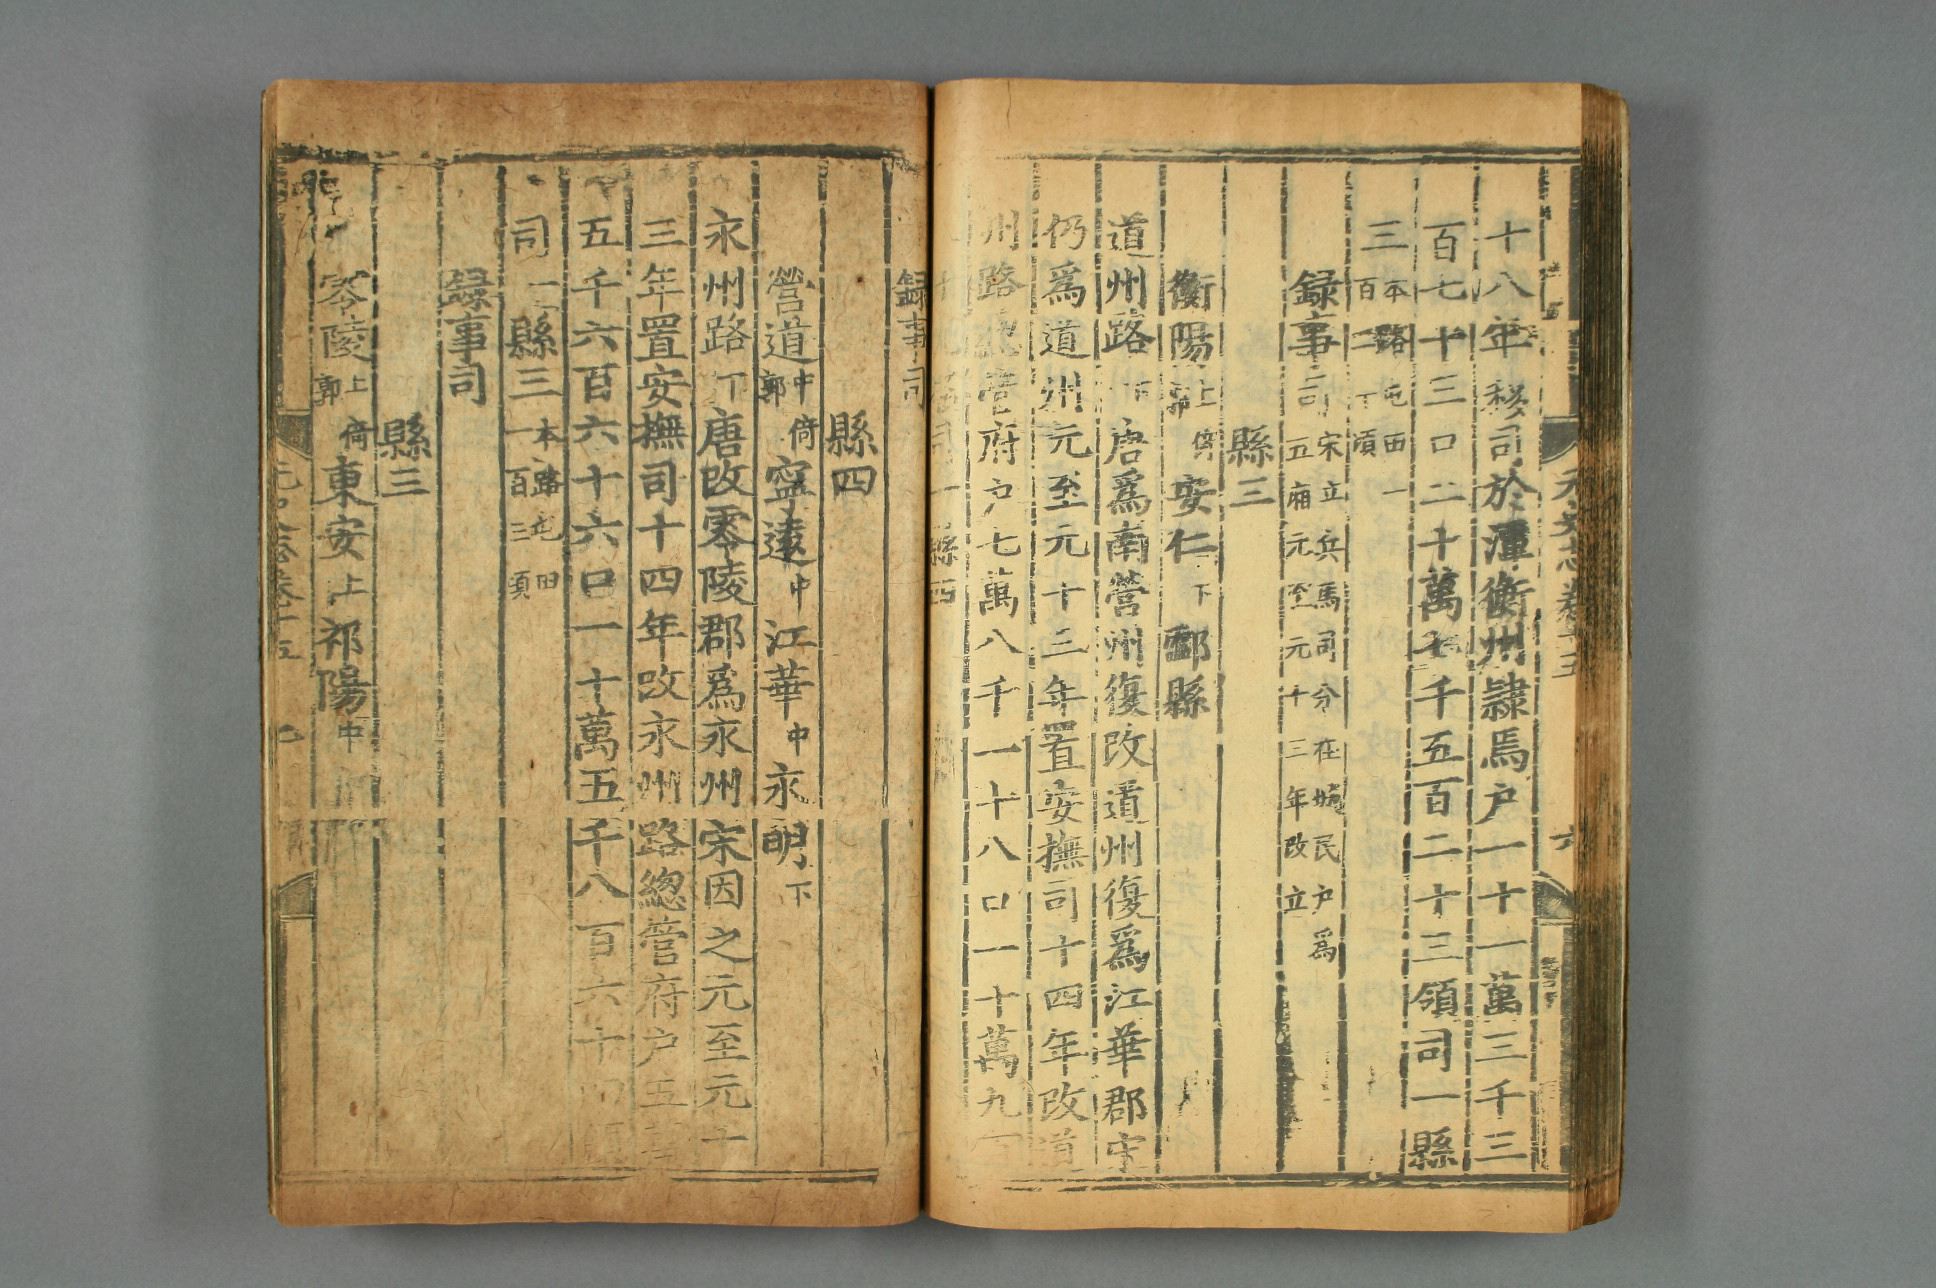 十八年移司於潭衡州隷焉户一十一萬三千三
百七十三口二十萬七千五百二十三領司一縣
三本路屯田一百二十頃
録事司宋立兵馬司分在城民户爲五廂元至元十三年改立
縣三
衡陽上倚郭安仁下酃縣
道州路下唐爲南營州復改道州復爲江華郡宋
仍爲道州元至元十三年置安撫司十四年改道
州路總管府户七萬八千一十八口一十萬九百
録事司
縣四
營道中倚郭寧遠中江華中永明下
永州路下唐改零陵郡爲永州宋因之元至元十
三年置安撫司十四年改永州路總管府户五萬
五千六百六十六口一十萬五千八百六十四領
司一縣三本路屯田一百三頃
録事司
縣三
零陵上倚郭東安上祁陽中